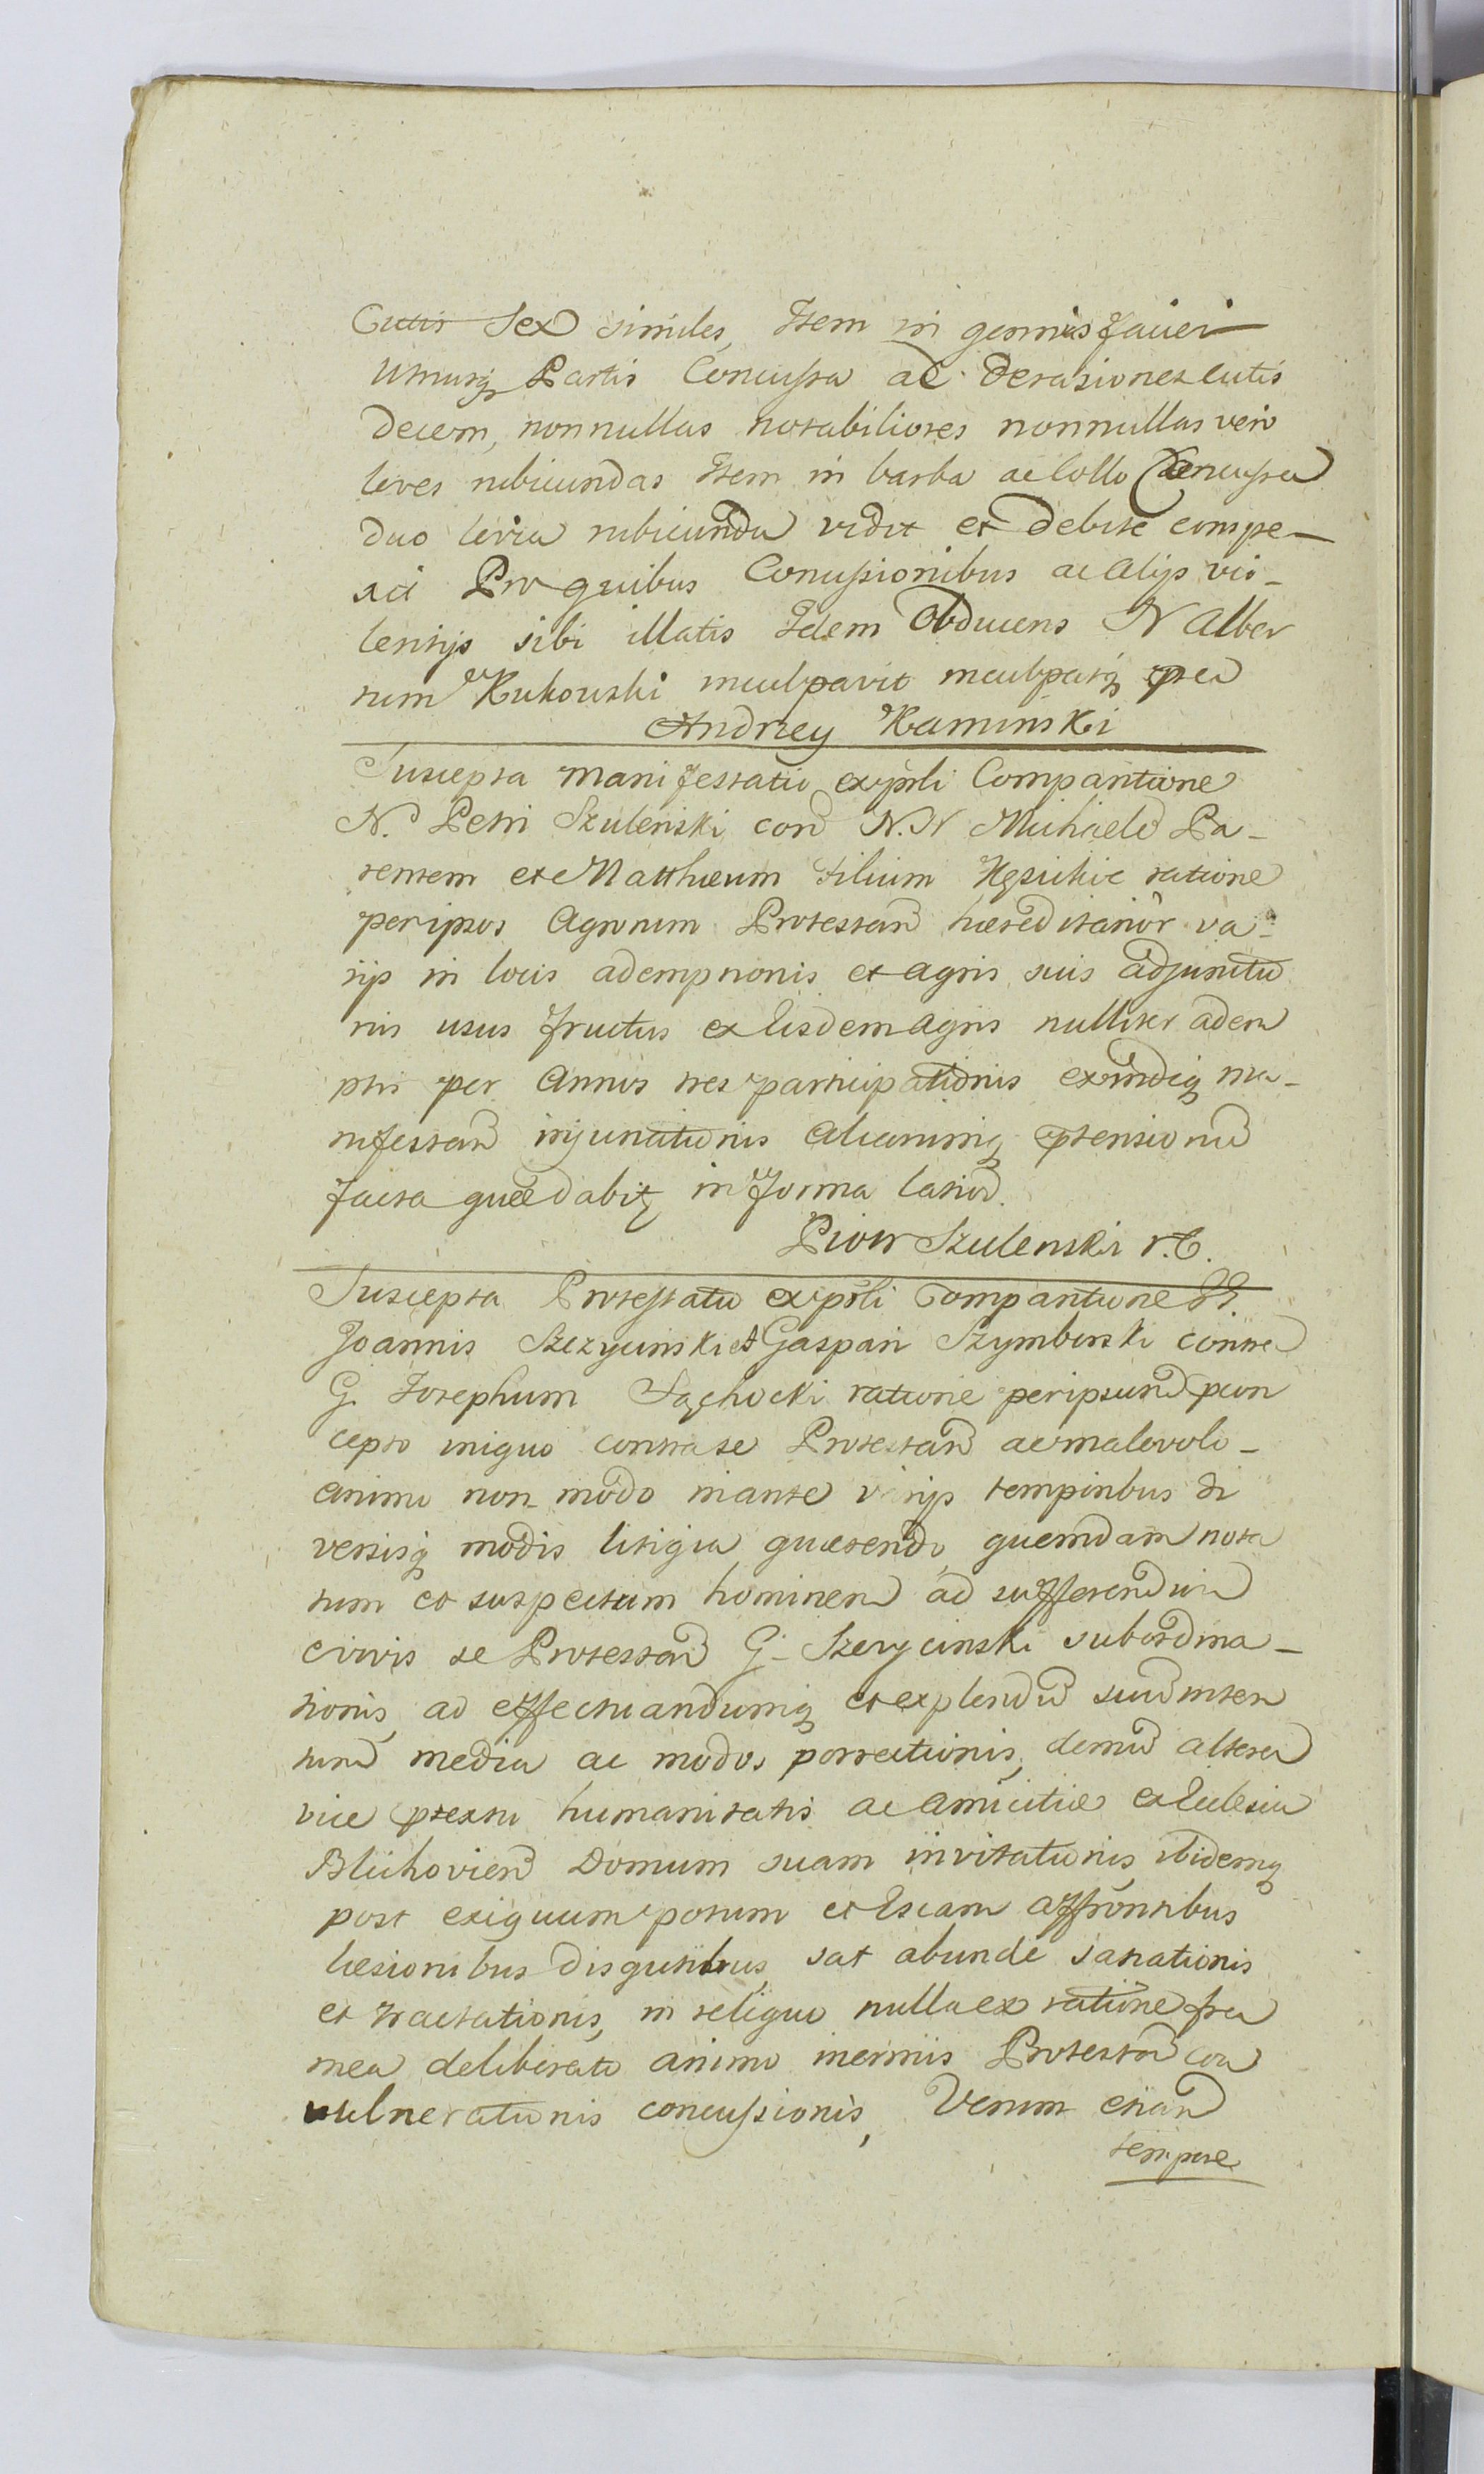 Cutis Sex similes, Item in gennis faciei
utriusq Partis Concussa ac Derasiones cutis
Decem, nonnullas notabiliores nonnullas vero
leves rubicundas Item in barba ac Collo Concussa
duo levia rubicunda vidit et debite conspe-
xit Pro quibus Concussionibus ac alijs vio-
lentijs sibi illatis Idem Obducens N Alber
tum Kukowski inculpavit inculpatq
Andrzey Kaminski
Suscepta Manifestatio ex psli Comparitione
N. Petri Szulenski con N.N Michaele Pa-
rentem et Matthæum Filium ratione
per ipsos Agrorum Protestan hæreditarior va-
rijs in locis ademptionis et agris suis adjunctio
nis usus fructus ex Eisdem agris nulliter adem
ptis per Annos tres participationis exindeq ma-
nifestan injunctionis aliarumq ptensionu
facta quæ dabitq in forma latiod.
Piotr Szulenski r.C.
Suscepta Protestatio ex psli Comparitione GG.
Joannis Szczycinski et Gaspari Szymborski contra
G. Josephum ratione per ipsum pcon
cepto iniquo contra se Protestan ac malevolo-
animo non modo in ante varijs temporibus di
versisq modis litigia quærendo quemdam nota
tum et suspectum hominem ad sufferendum
crivis se Protestan G. Szczycinski subordina-
tionis, ad effectuandumq et explendu suum inten
tum media ac modos porrectionis, demu altera
vice ptextu humanitatis ac amicitiæ ex Ecclesia
Blichovien Domum suam invitationis, ibidemq
post exiguum potum et Escam affrontibus
læsionibus disgustibus, sat abunde sanationis
et tractationis, in reliquo nulla ex ratione fra
mea deliberato animo inermis Protestan con
vulnerationis concussionis, Verum etiam
tempore